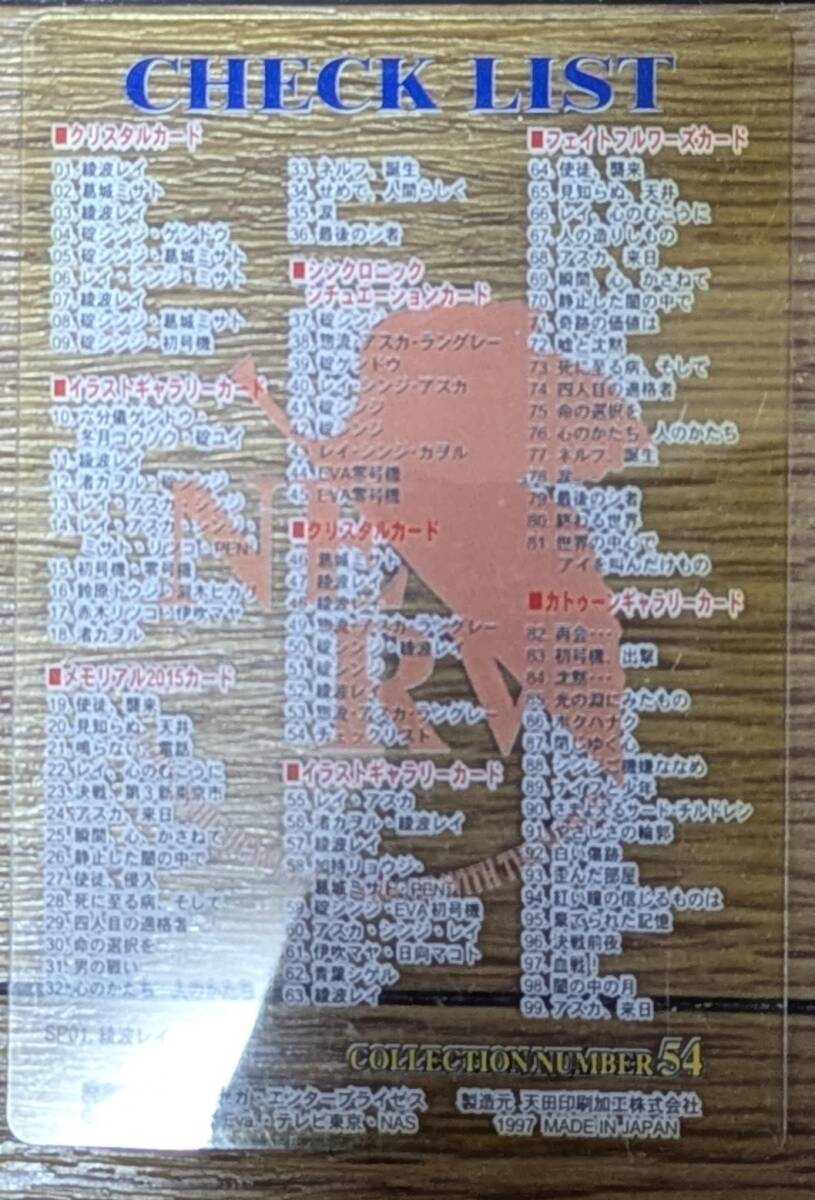 CHECK LIST
■クリスタルカード
01 綾波レイ
02 葛城ミサト
03 綾波レイ
04 碇シンジ・ゲンドウ
05 碇シンジ・葛城ミサト
06 レイ・シンジ・ミサト
07 綾波レイ
08 碇シンジ・葛城ミサト
09 碇シンジ・初号機
■イラストギャラリーカード
10 六分儀ゲンドウ・
冬月コウゾウ・碇ユイ
11 綾波レイ
12 渚カヲル・碇シンジ
14 レイ・アスカ・シンジ・
ミサト・リツコ・PEN
15 初号機・零号機
16 鈴原トウジ・洞木ヒカリ
17 赤木リツコ・伊吹マヤ
18 渚カヲル
■メモリアル2015カード
19 使徒、襲来
20 見知らぬ、天井
21 鳴らない、電話
22 レイ、心のむこうに
23 決戦、第3新東京市
24 アスカ、来日
25 瞬間、心、かさねて
26 静止した闇の中で
27 使徒、侵入
28 死に至る病、そして
29 四人目の適格者
30 命の選択を
31 男の戦い
32 心のかたち 人のかたち
33 ネルフ、誕生
34 せめて、人間らしく
35 涙
36 最後のシ者
■シンクロニック
シチュエーションカード
37 碇シンジ
38 惣流・アスカ・ラングレー
39 碇ゲンドウ
40 レイ・シンジ・アスカ
41 碇シンジ
42 碇シンジ
43 レイ・シンジ・カヲル
44 EVA零号機
45 EVA零号機
■クリスタルカード
46 葛城ミサト
47 綾波レイ
48 綾波レイ
49 惣流・アスカ・ラングレー
50 碇シンジ・綾波レイ
51 碇シンジ
52 綾波レイ
53 惣流・アスカ・ラングレー
54 チェックリスト
■イラストギャラリーカード
55 レイ・アスカ
56 渚カヲル・綾波レイ
57 綾波レイ
58 加持リョウジ・
葛城ミサト・PEN
59 碇シンジ・EVA初号機
60 アスカ・シンジ・レイ
61 伊吹マヤ・日向マコト
62 青葉シゲル
63 綾波レイ
■フェイトフルワーズカード
64 使徒、襲来
65 見知らぬ、天井
66 レイ、心のむこうに
67 人の造りしもの
68 アスカ、来日
69 瞬間、心、かさねて
70 静止した闇の中で
71 奇跡の価値は
72 嘘と沈黙
73 死に至る病、そして
74 四人目の適格者
75 命の選択を
76 心のかたち 人のかたち
77 ネルフ、誕生
78 涙
79 最後のシ者
80 終わる世界
81 世界の中心で
アイを叫んだけもの
■カトゥーンギャラリーカード
82 再会…
83 初号機、出撃
84 沈黙…
85 光の淵にみたもの
86 ボクハナク
87 閉じゆく心
88 シンジご機嫌ななめ
89 ナイフと少年
90 さまよえるサード・チルドレン
91 やさしさの輪郭
92 白い傷跡
93 歪んだ部屋
94 紅い瞳の信じるものは
95 棄てられた記憶
96 決戦前夜
97 血戦!
98 闇の中の月
99 アスカ、来日
SP01. 綾波レイ
COLLECTION NUMBER 54
セガ・エンタープライゼス
製造元 天田印刷加工株式会社
Eva・テレビ東京・NAS
1997 MADE IN JAPAN
NERV